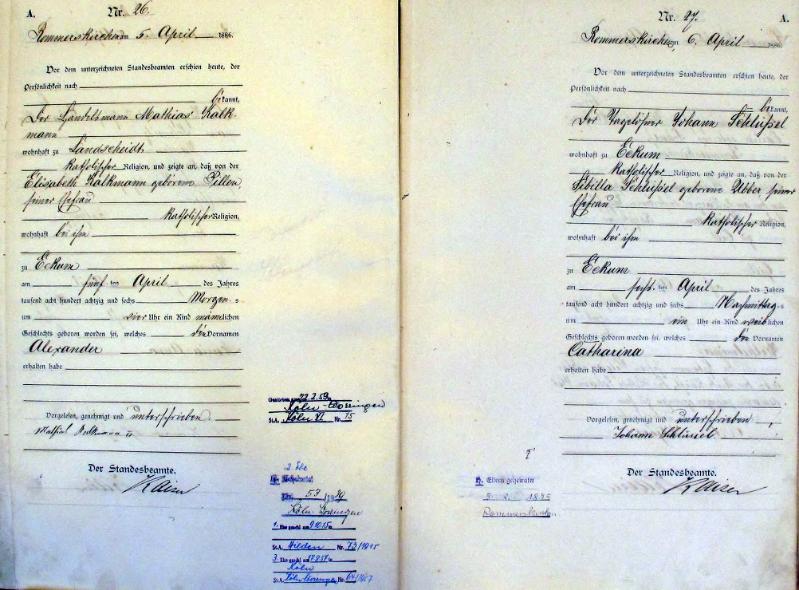 A.
Nr. 26.
Rommerskirchen am 5. April 1886.
Vor dem unterzeichneten Standesbeamten erschien heute, der
Persönlichkeit nach
bekannt,
Der Handelsmann Mathias Kalk-
mann
wohnhaft zu Landscheidt
katholischer Religion, und zeigte an, daß von der
Elisabeth Kalkmann geborene Pillen,
seiner Ehefrau
katholischer Religion,
wohnhaft bei ihm
zu Eckum
am fünf ten April des Jahres
tausend acht hundert achtzig und sechs Morgen-s
um vier Uhr ein Kind männlichen
Geschlechts geboren worden sei, welches den Vornamen
Alexander
erhalten habe
Vorgelesen, genehmigt und unterschrieben.
Der Standesbeamte.
Kaiser
22.2.59
Köln VI Nr. 75
2. Ehe
53
1. Ehe
StA. Hilden Nr. 73/1915
3. Ehe
Köln
StA.
A.
Nr. 27.
Rommerskirchen 6. April 1886.
Vor dem unterzeichneten Standesbeamten erschien heute, der
Persönlichkeit nach
bekannt,
Der Tagelöhner Johann Schlüssel
wohnhaft zu Eckum
katholischer Religion, und zeigte an, daß von der
Sibilla Schlüssel geborene Übber, seiner
Ehefrau
katholischer Religion,
wohnhaft bei ihm
zu Eckum
am sechs ten April des Jahres
tausend acht hundert achtzig und sechs Nachmittag-
um ein Uhr ein Kind weiblichen
Geschlechts geboren worden sei, welches den Vornamen
Catharina
erhalten habe
Vorgelesen, genehmigt und unterschrieben.
Johann Schlüssel
Der Standesbeamte.
Kaiser
Eltern geheiratet
Rommerskirchen